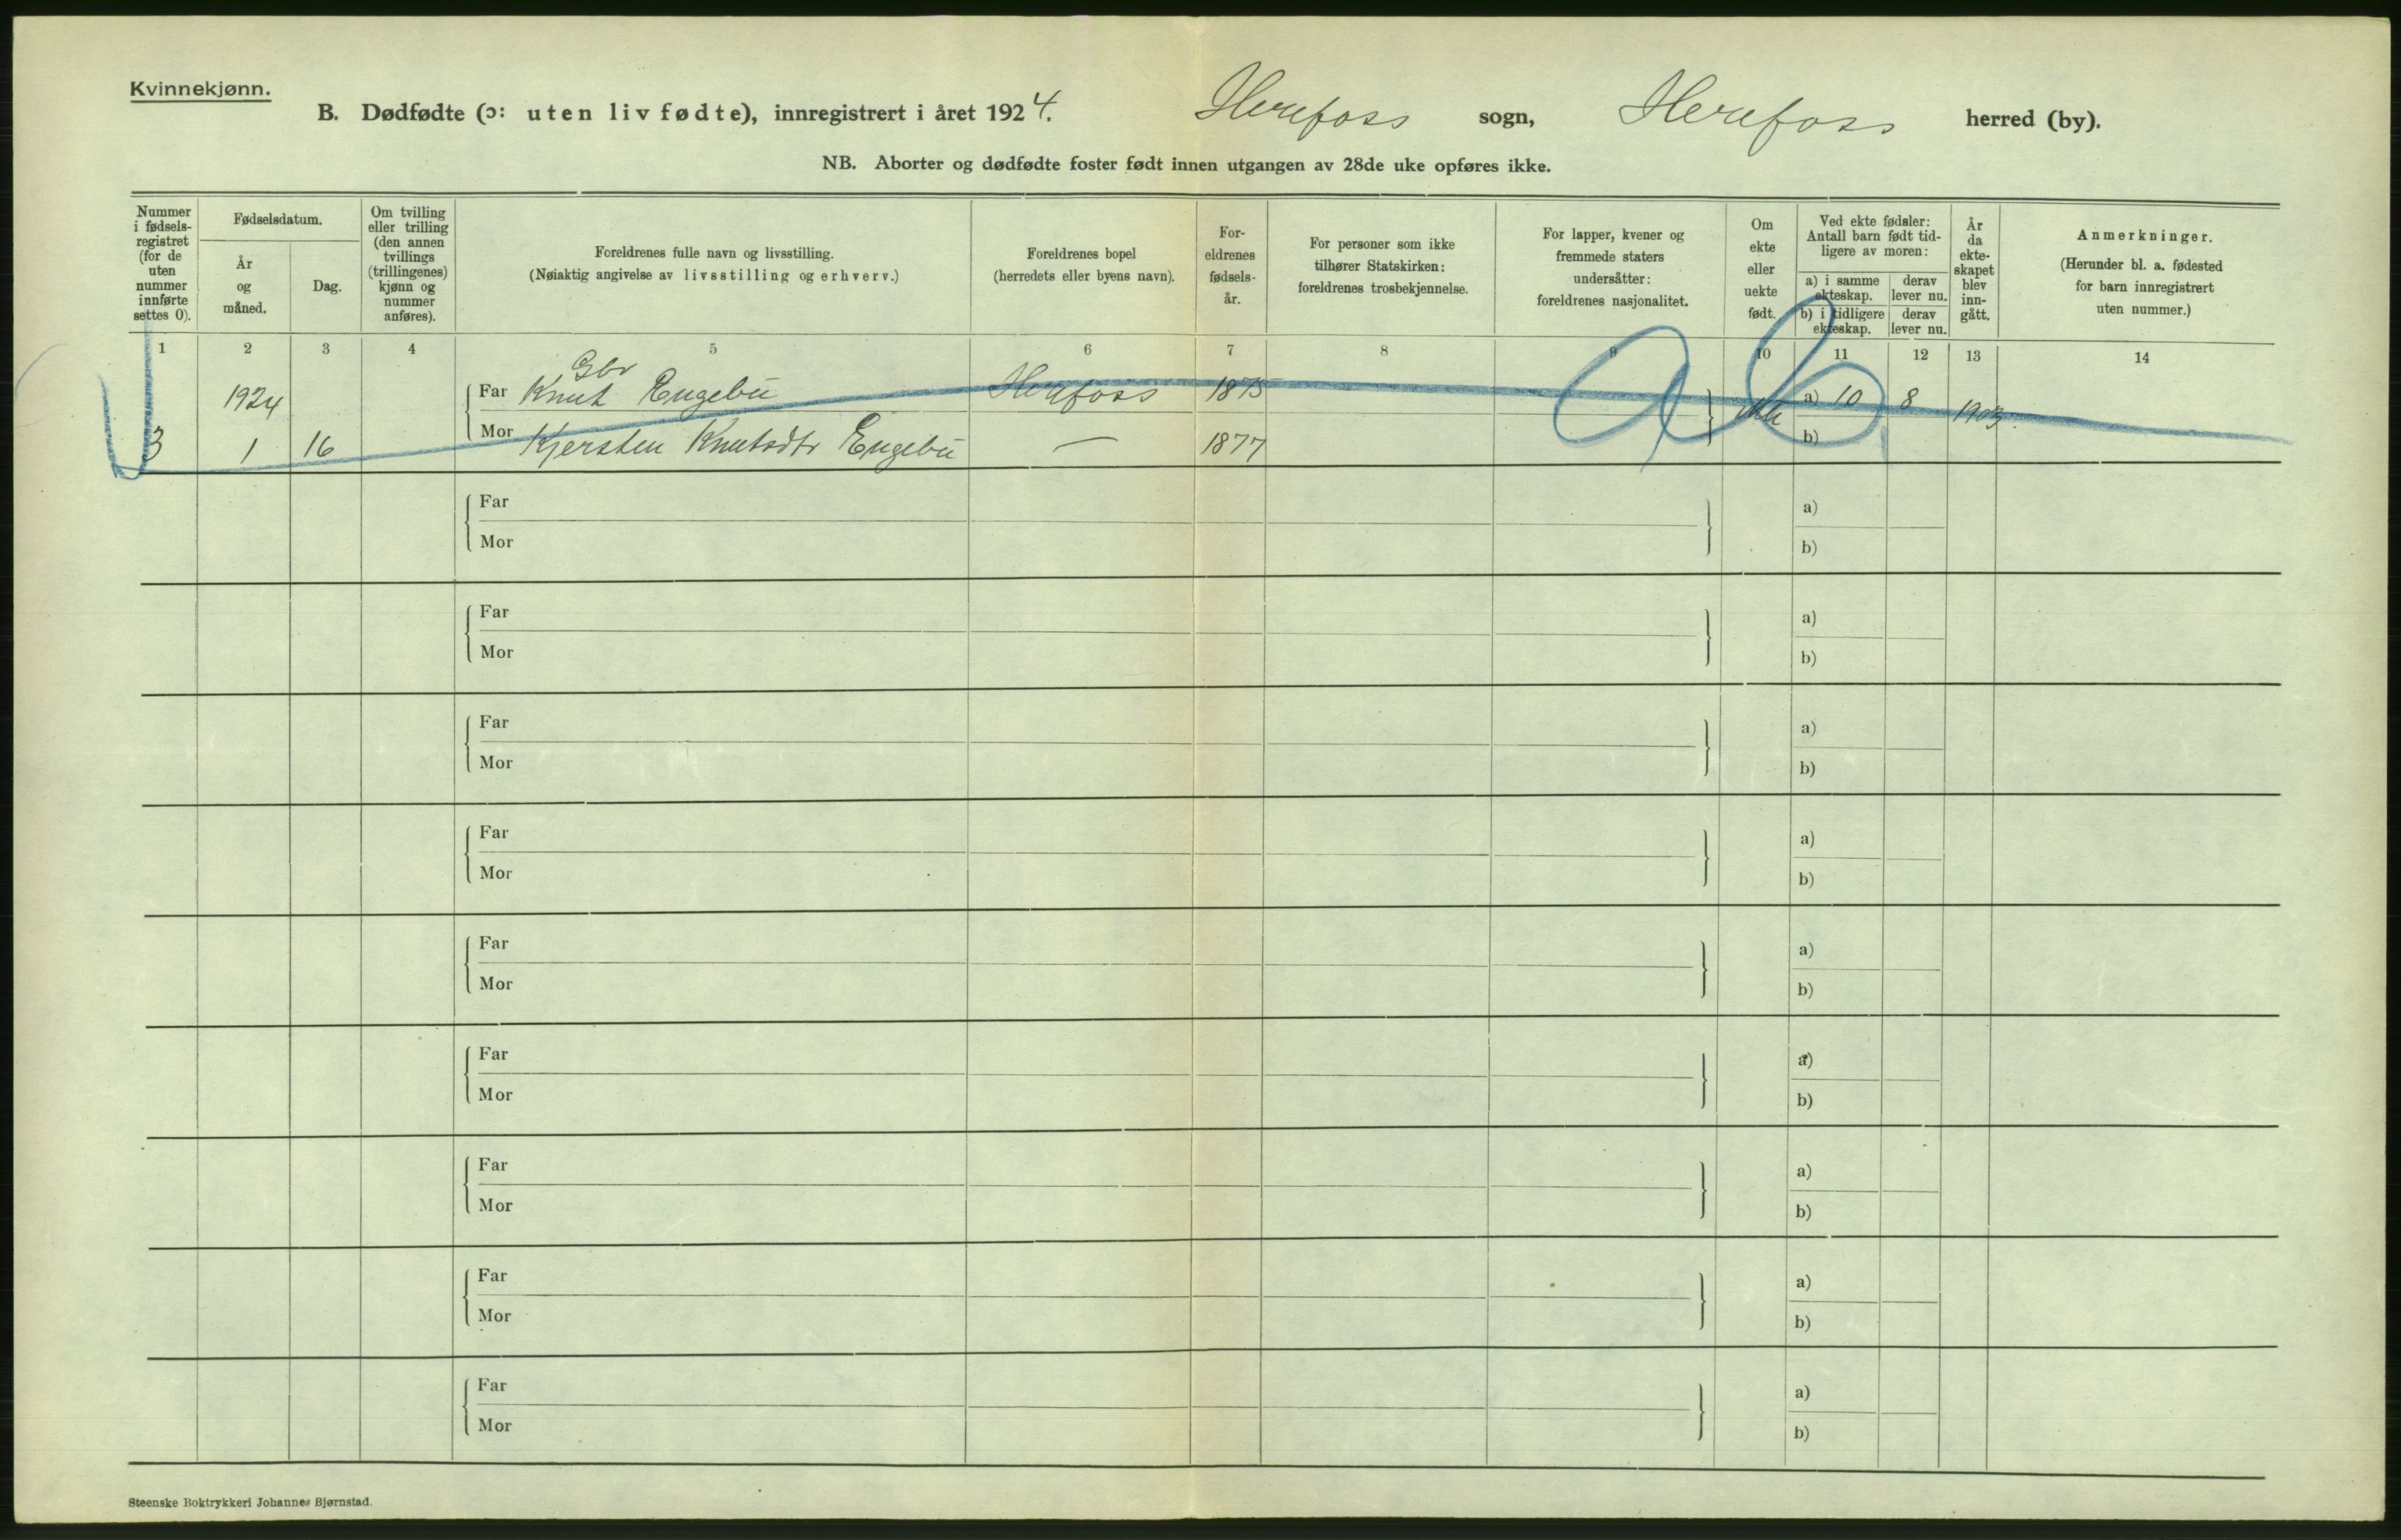 Kvinnekjønn.
B. Dødfødte (ɔ: uten liv fødte), innregistrert i året 1924. Herefoss sogn, Herefoss herred (by).
NB. Aborter og dødfødte foster født innen utgangen av 28de uke opføres ikke.
Nummer i fødsels-registret (for de uten nummer innførte settes 0).
Fødselsdatum.
År og måned.
Dag.
Om tvilling eller trilling (den annen tvillings (trillingenes) kjønn og nummer anføres).
Foreldrenes fulle navn og livsstilling.
(Nøiaktig angivelse av livsstilling og erhverv.)
Foreldrenes bopel
(herredets eller byens navn).
For-eldrenes fødsels-år.
For personer som ikke tilhører Statskirken: foreldrenes trosbekjennelse.
For lapper, kvener og fremmede staters undersåtter: foreldrenes nasjonalitet.
Om ekte eller uekte født.
Ved ekte fødsler: Antall barn født tid-ligere av moren:
a) i samme ekteskap.
derav lever nu.
b) i tidligere ekteskap.
derav lever nu.
År da ekte-skapet blev inn-gått.
Anmerkninger.
(Herunder bl. a. fødested for barn innregistrert uten nummer.)
1 2 3 4 5 6 7 8 9 10 11 12 13 14
Gbr
1924 Far Knut Engebu Herefoss 1875 ekte a) 10 8 1903.
3 1 16 Mor Kjersten Knutsdtr Engebu — 1877 b)
Far a)
Mor b)
Far a)
Mor b)
Far a)
Mor b)
Far a)
Mor b)
Far a)
Mor b)
Far a)
Mor b)
Far a)
Mor b)
Far a)
Mor b)
Far a)
Mor b)
Steenske Boktrykkeri Johannes Bjørnstad.